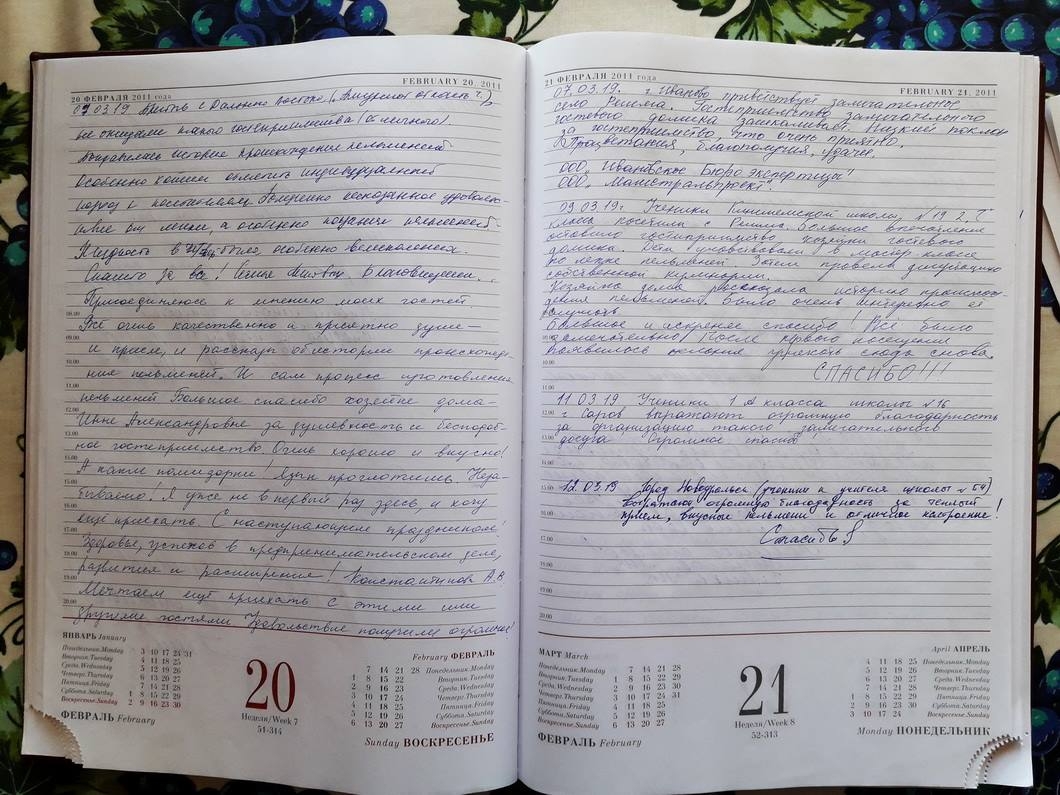 20 ФЕВРАЛЯ 2011 года
FEBRUARY 20, 2011
07.03.19. с Дальнего Востока (Амурская область),
не ожидали такого гостеприимства
историю происхождения пельменей
Особенно хотим отметить индивидуальный
подход к
а особенно
в особенно
Спасибо за все! Благовещенск.
Присоединяюсь к мнению моих гостей
Всё очень качественно и приятно душе—
и прием, и рассказ об истории происхожде-
ния пельменей. И сам процесс изготовления
пельменей Большое спасибо хозяйке дома—
Инне Александровне за душевность и бесподоб-
ное гостеприимство Очень хорошо и вкусно!
А какие помидорки! Язык проглотишь Неза-
бываемо! Я уже не в первый раз здесь и хочу
ещё приехать. С наступающим праздником!
Здоровья, успехов в предпринимательском деле,
развития и расширения! Константинова А.В.
Мечтаем ещё приехать с этими или
другими гостями Удовольствие получили огромное!
08.00
09.00
10.00
11.00
12.00
13.00
14.00
15.00
16.00
17.00
18.00
19.00
20.00
ЯНВАРЬ January
Понедельник.Monday 3 10 17 24 31
Вторник.Tuesday 4 11 18 25
Среда.Wednesday 5 12 19 26
Четверг.Thursday 6 13 20 27
Пятница.Friday 7 14 21 28
Суббота.Saturday 1 8 15 22 29
Воскресенье.Sunday 2 9 16 23 30
ФЕВРАЛЬ February
20
Неделя/Week 7
51-314
February ФЕВРАЛЬ
7 14 21 28 Понедельник.Monday
1 8 15 22 Вторник.Tuesday
2 9 16 23 Среда.Wednesday
3 10 17 24 Четверг.Thursday
4 11 18 25 Пятница.Friday
5 12 19 26 Суббота.Saturday
6 13 20 27 Воскресенье.Sunday
Sunday ВОСКРЕСЕНЬЕ
21 ФЕВРАЛЯ 2011 года
FEBRUARY 21, 2011
07.03.19. г. Иваново приветствует замечательное
село Решма. Гостеприимство замечательного
гостевого домика зашкаливает. Низкий поклон
за гостеприимство, что очень приятно.
Процветания, благополучия, удачи.
ООО "Ивановское Бюро экспертизы"
ООО "Магистральпроект".
09.03.19г. Ученики Кинешемской школы №19 2 "Г"
класс посетили с. Решма. Большое впечатление
оставило гостеприимство хозяйки гостевого
домика. Дети участвовали в мастер-классе
по лепке пельменей. Затем провели дегустацию
собственной кулинарии.
Хозяйка дома рассказала историю происхож-
дения пельменей. Было очень интересно её
слушать
Большое и искреннее спасибо! Всё было
замечательно! После первого посещения
появилось желание приехать сюда снова.
СПАСИБО!!!
11.03.19 Ученики 1 А класса школы №16
г. Саров выражают огромную благодарность
за организацию такого замечательного
досуга Огромное спасибо!
12.03.19 Город Новоуральск (ученики и учителя школы №54)
выражаю огромную благодарность за теплый
прием, вкусные пельмени и отличное настроение!
Спасибо
09.00
10.00
11.00
12.00
13.00
14.00
15.00
16.00
17.00
18.00
19.00
20.00
МАРТ March
Понедельник.Monday 7 14 21 28
Вторник.Tuesday 1 8 15 22 29
Среда.Wednesday 2 9 16 23 30
Четверг.Thursday 3 10 17 24 31
Пятница.Friday 4 11 18 25
Суббота.Saturday 5 12 19 26
Воскресенье.Sunday 6 13 20 27
ФЕВРАЛЬ February
21
Неделя/Week 8
52-313
April АПРЕЛЬ
4 11 18 25 Понедельник.Monday
5 12 19 26 Вторник.Tuesday
6 13 20 27 Среда.Wednesday
7 14 21 28 Четверг.Thursday
1 8 15 22 29 Пятница.Friday
2 9 16 23 30 Суббота.Saturday
3 10 17 24 Воскресенье.Sunday
Monday ПОНЕДЕЛЬНИК